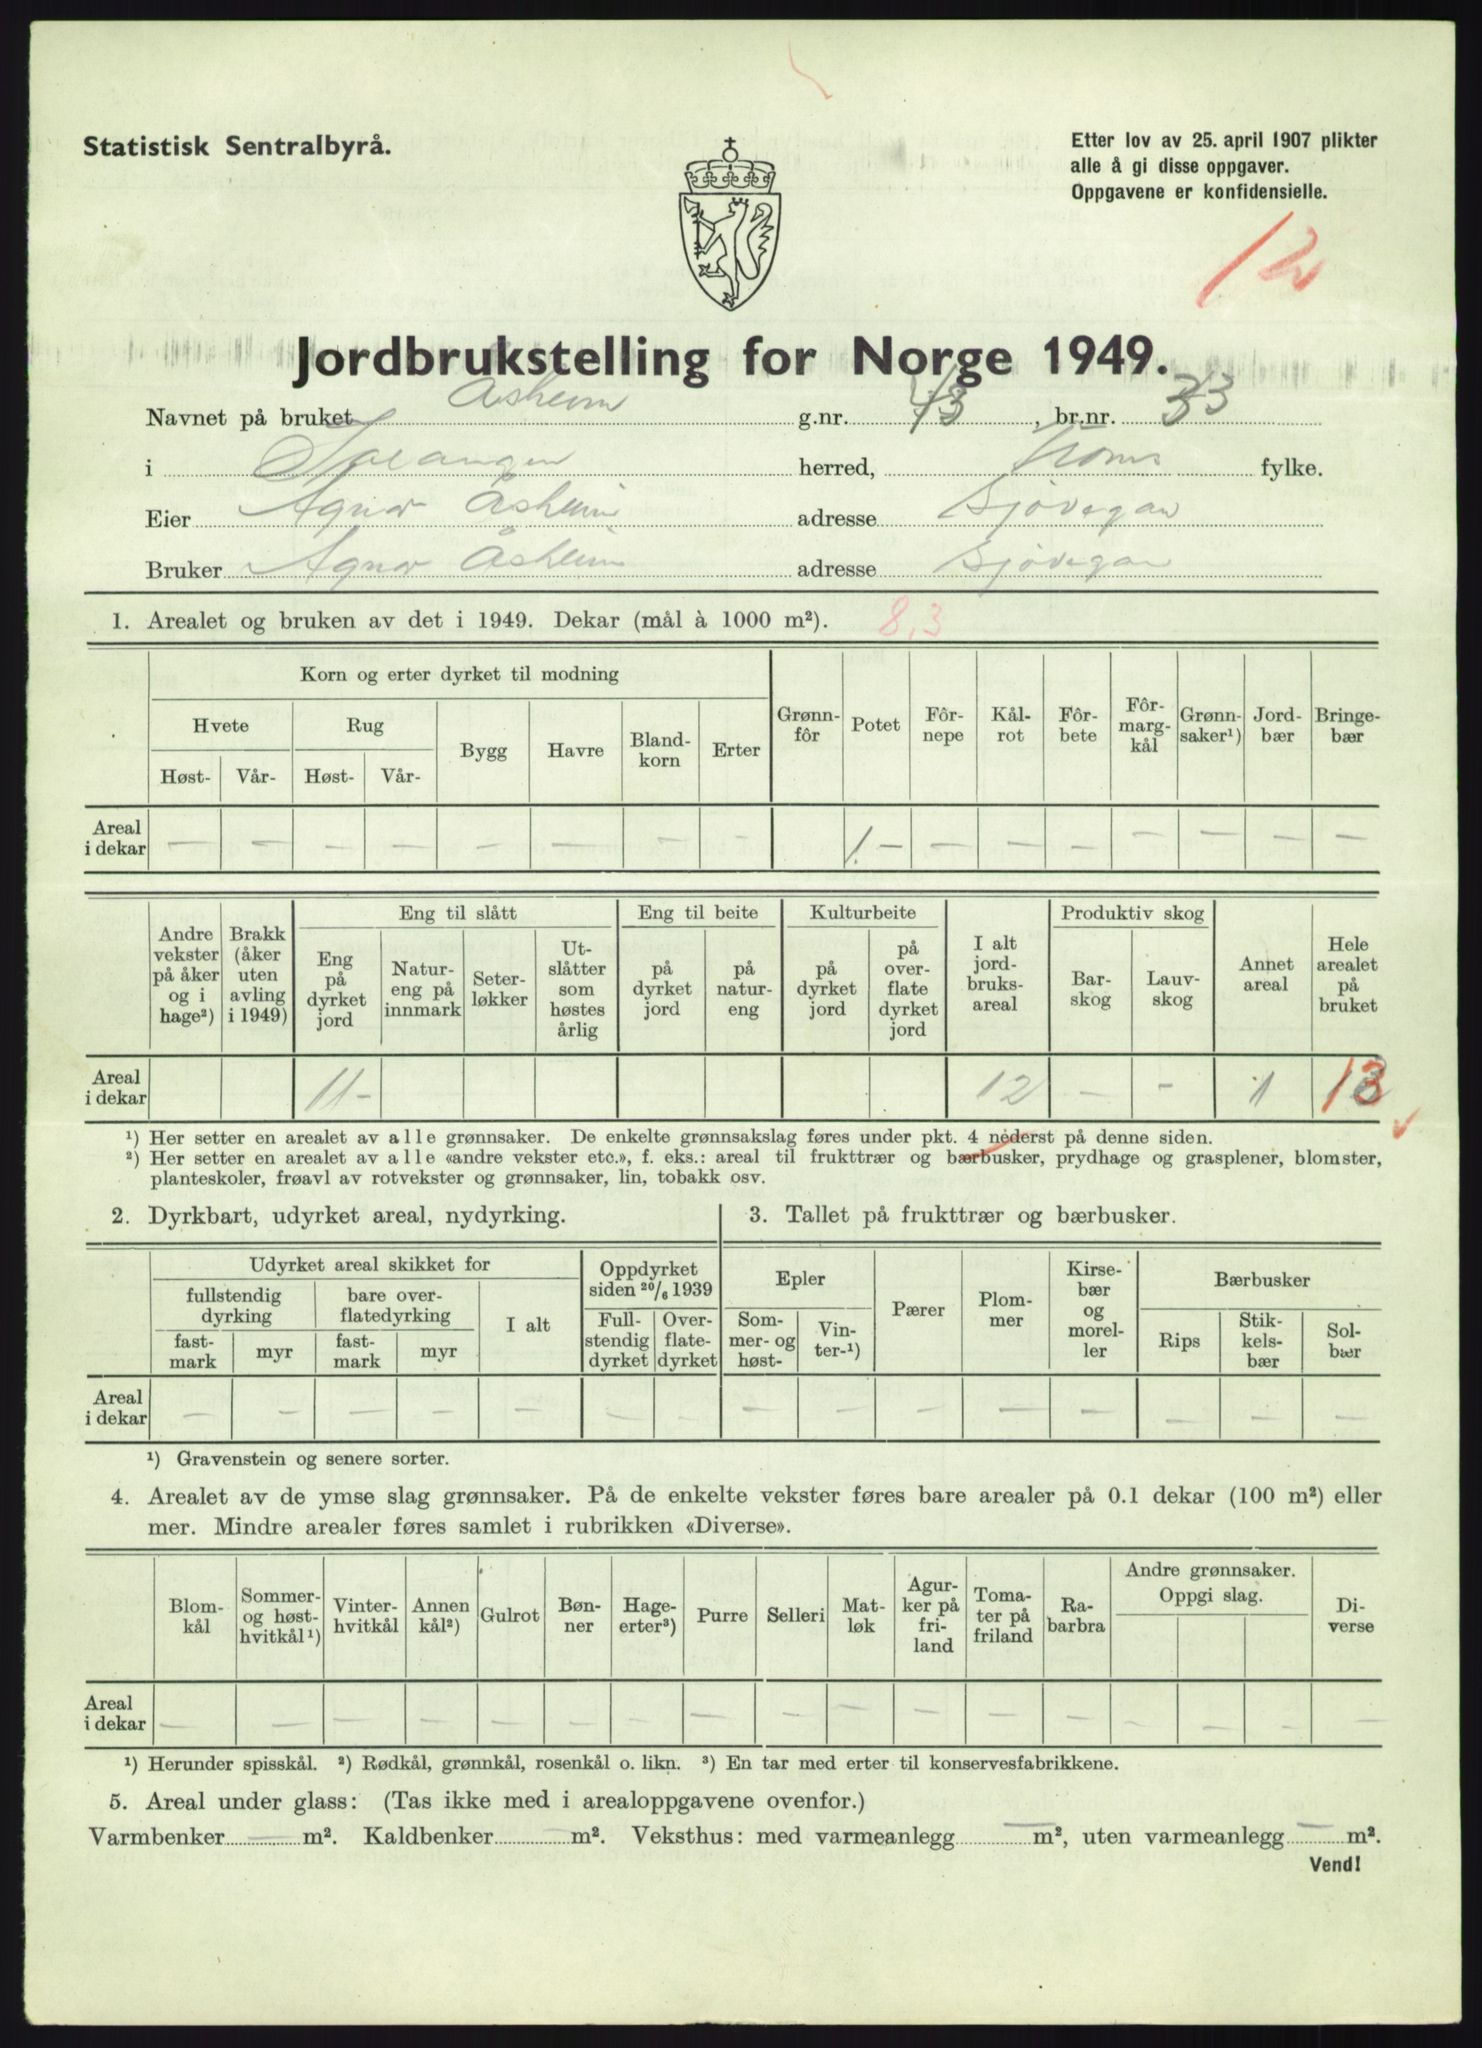 Statistisk Sentralbyrå.
Etter lov av 25. april 1907 plikter
alle å gi disse oppgaver.
Oppgavene er konfidensielle.
12
Jordbrukstelling for Norge 1949.
Navnet på bruket Åsheim g.nr. 43, br.nr. 33
i Salangen herred, Troms fylke.
Eier Agnar Åsheim adresse Sjøvegan
Bruker Agnar Åsheim adresse Sjøvegan
1. Arealet og bruken av det i 1949. Dekar (mål à 1000 m²). 8,3
Korn og erter dyrket til modning
Hvete Rug Bygg Havre Bland-korn Erter Grønn-fôr Potet Fôr-nepe Kål-rot Fôr-bete Fôr-marg-kål Grønn-saker¹) Jord-bær Bringe-bær
Høst- Vår- Høst- Vår-
Areal i dekar — — — — — — — — 1. — — — — — — — —
Andre vekster på åker og i hage²) Brakk (åker uten avling i 1949) Eng til slått Eng til beite Kulturbeite I alt jord-bruks-areal Produktiv skog Annet areal Hele arealet på bruket
Eng på dyrket jord Natur-eng på innmark Seter-løkker Ut-slåtter som høstes årlig på dyrket jord på natur-eng på dyrket jord på over-flate dyrket jord Bar-skog Lauv-skog
Areal i dekar 11 — 12 — — 1 13
¹) Her setter en arealet av alle grønnsaker. De enkelte grønnsakslag føres under pkt. 4 nederst på denne siden.
²) Her setter en arealet av alle «andre vekster etc.», f. eks.: areal til frukttrær og bærbusker, prydhage og grasplener, blomster,
planteskoler, frøavl av rotvekster og grønnsaker, lin, tobakk osv.
2. Dyrkbart, udyrket areal, nydyrking.
Udyrket areal skikket for Oppdyrket siden 20/6 1939
fullstendig dyrking bare over-flatedyrking I alt Full-stendig dyrket Over-flate-dyrket
fast-mark myr fast-mark myr
Areal i dekar — — — — — — —
3. Tallet på frukttrær og bærbusker.
Epler Pærer Plom-mer Kirse-bær og morel-ler Bærbusker
Som-mer- og høst- Vin-ter-¹) Rips Stik-kels-bær Sol-bær
— — — — — — — —
¹) Gravenstein og senere sorter.
4. Arealet av de ymse slag grønnsaker. På de enkelte vekster føres bare arealer på 0.1 dekar (100 m²) eller
mer. Mindre arealer føres samlet i rubrikken «Diverse».
Blom-kål Sommer- og høst-hvitkål¹) Vinter-hvitkål Annen kål²) Gulrot Bøn-ner Hage-erter³) Purre Selleri Mat-løk Agur-ker på fri-land Toma-ter på friland Ra-barbra Andre grønnsaker. Oppgi slag. Di-verse
Areal i dekar — — — — — — — — — — — — — — — — —
¹) Herunder spisskål. ²) Rødkål, grønnkål, rosenkål o. likn. ³) En tar med erter til konservesfabrikkene.
5. Areal under glass: (Tas ikke med i arealoppgavene ovenfor.)
Varmbenker — m². Kaldbenker — m². Veksthus: med varmeanlegg — m², uten varmeanlegg — m².
Vend!